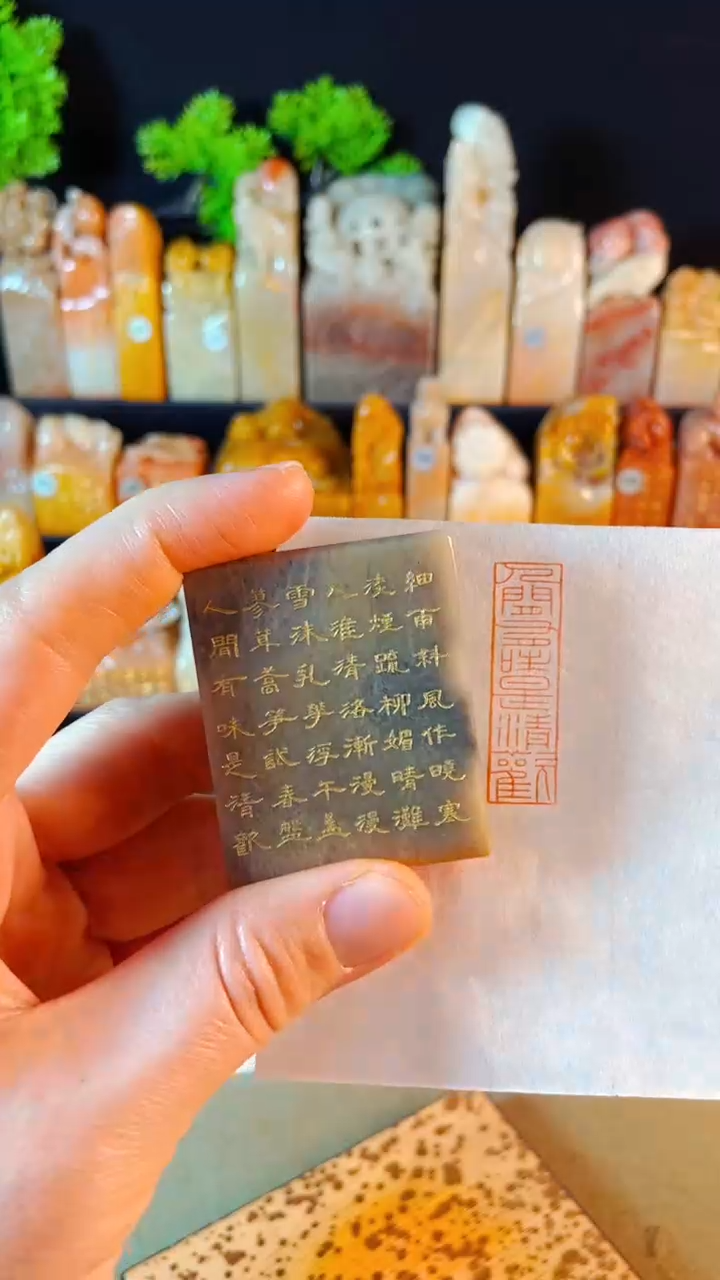 細雨斜風作曉寒
淡煙疏柳媚晴灘
入淮清洛漸漫漫
雪沫乳華浮午盞
蓼茸蒿筍試春盤
人間有味是清歡
人間有味是清歡